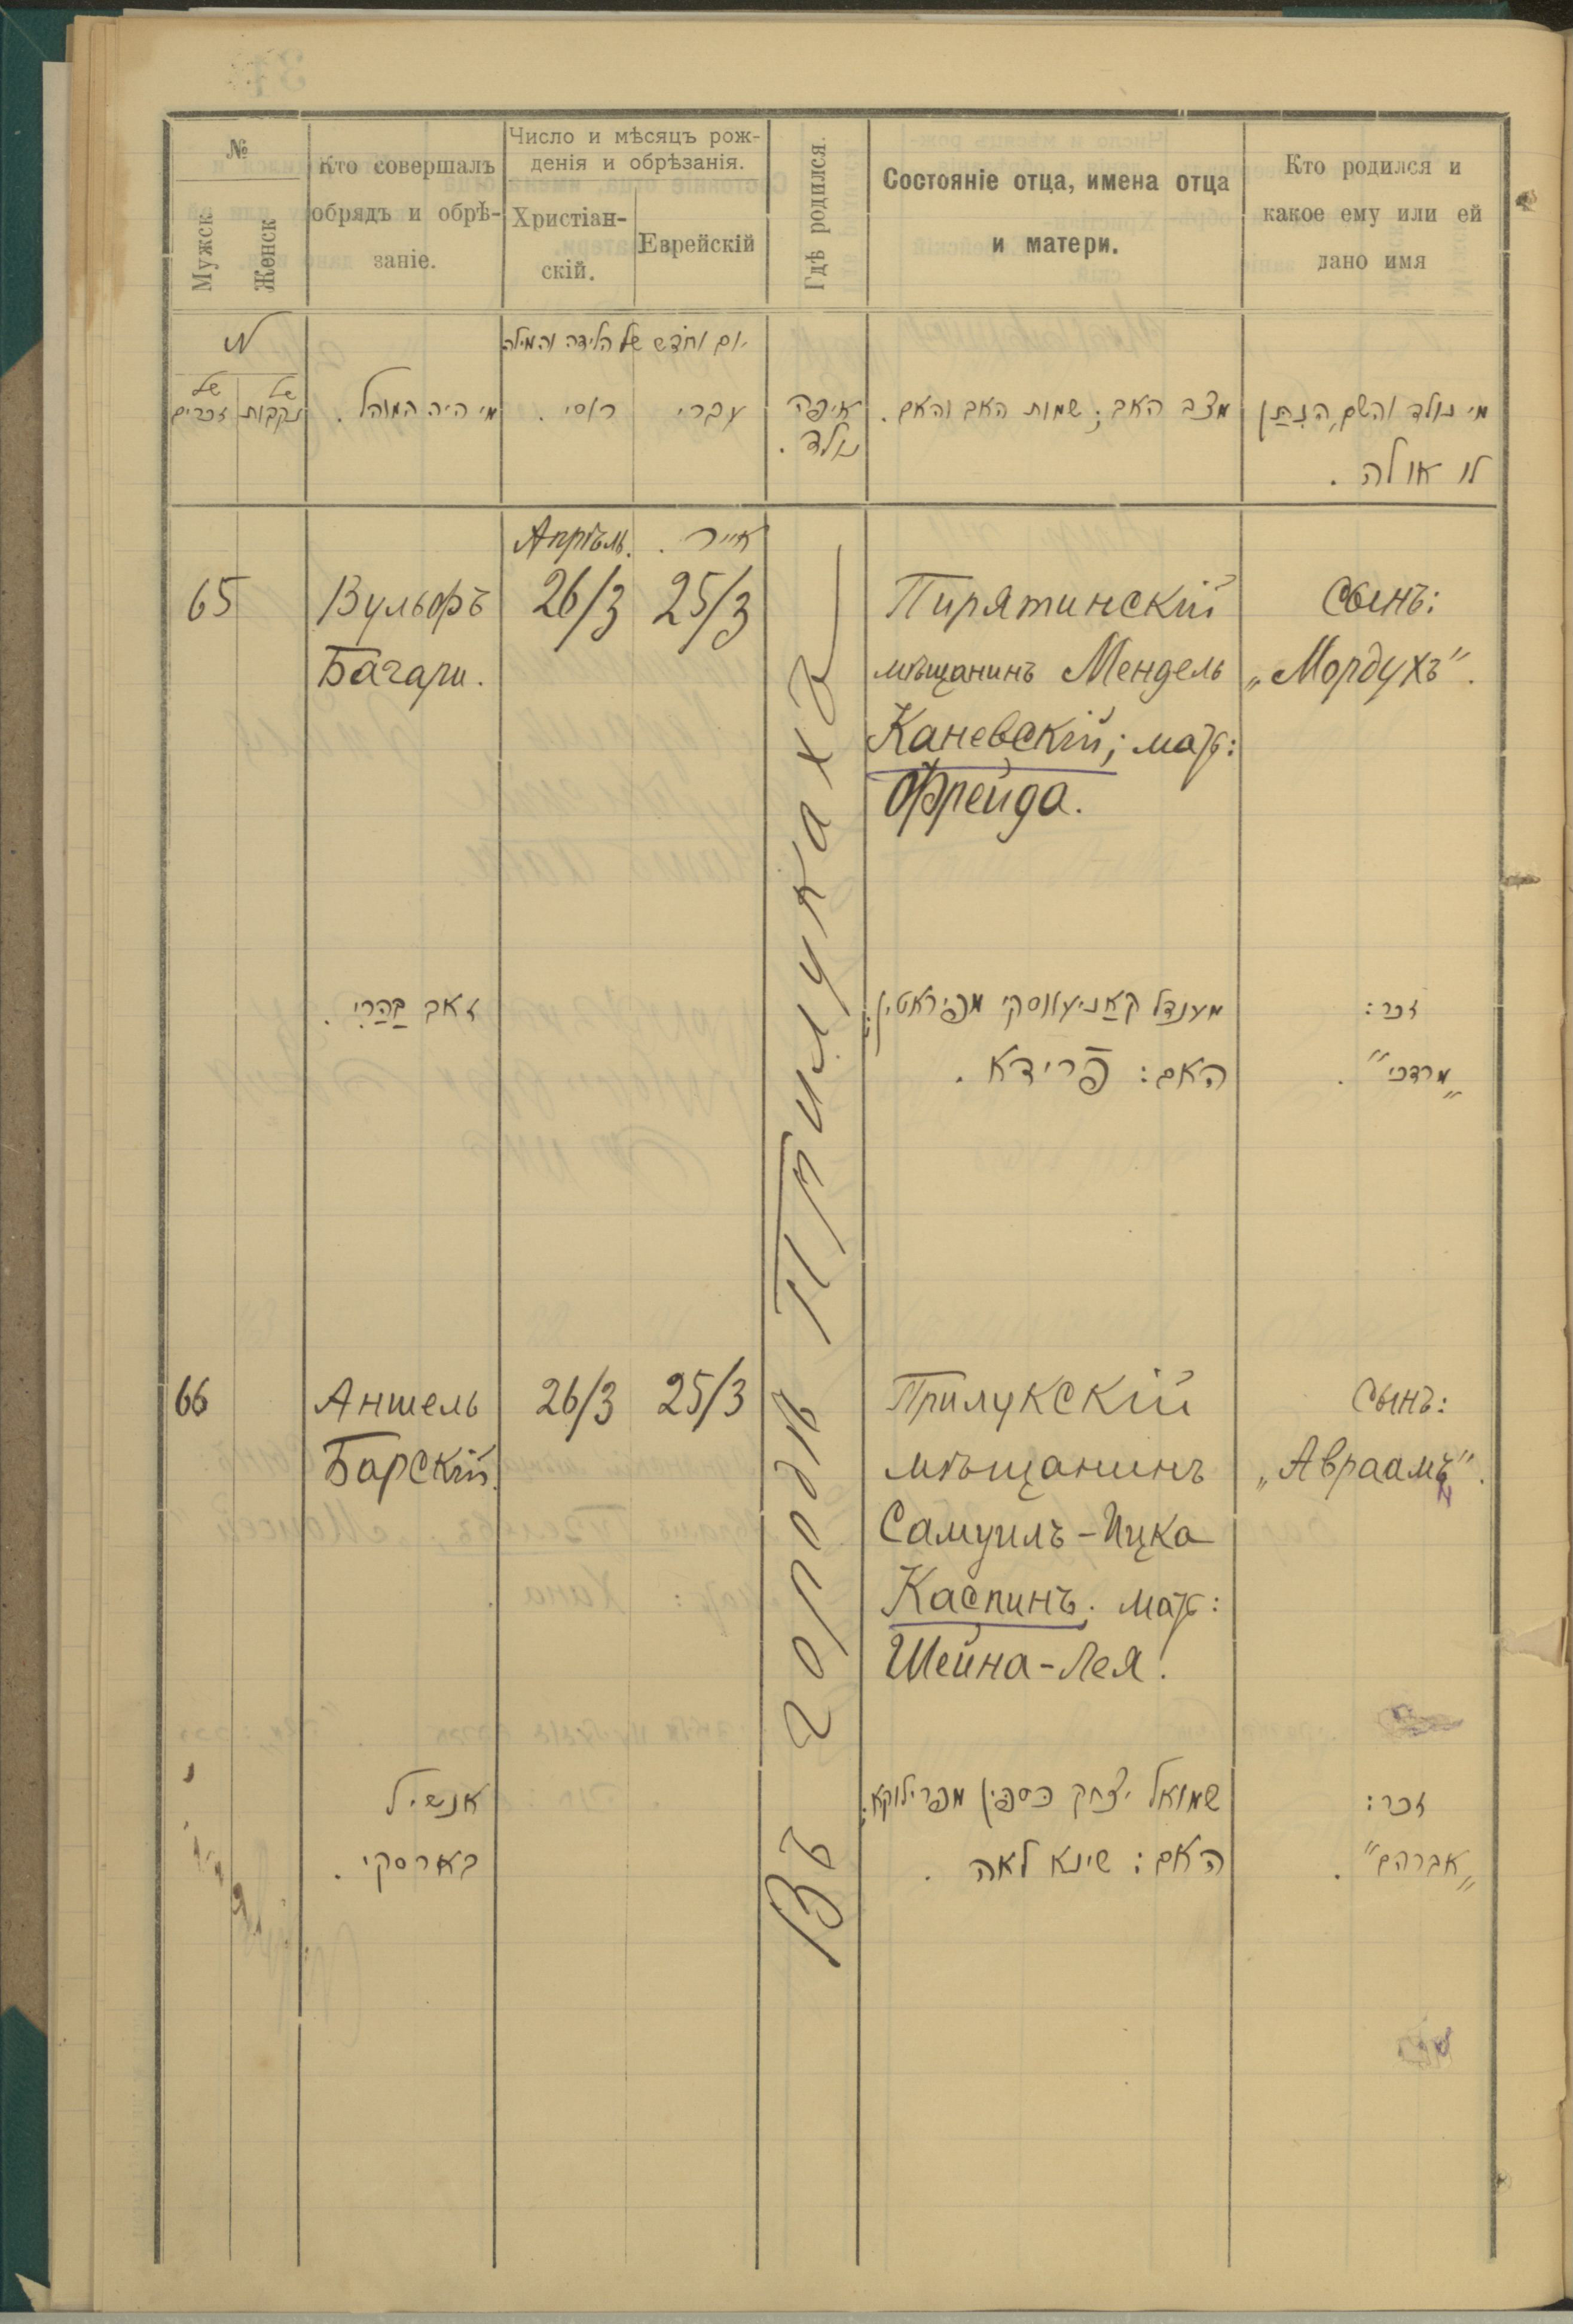 №
Мужск
Женск
Кто совершалъ
обрядъ и обрѣ-
заніе.
Число и мѣсяцъ рож-
денія и обрѣзанія.
Христіан-
скій.
Еврейскій
Гдѣ родился.
Состояніе отца, имена отца
и матери.
Кто родился и
какое ему или ей
дано имя
N
של
זכרים
של
נקבות
מי היה המוהל.
יום וחדש של הלידה והמילה
רוסי.
עברי
איפה
נולד.
מצב האב; שמות האב והאם.
מי נולד והשם הנתן
לו או לה.
Апрѣль.
אייר.
65
Вульфъ
Багари.
26/3
25/3
Пирятинскій
мѣщанинъ Мендель
Каневскій; мать:
Фрейда.
Сынъ:
„Мордухъ".
זאב בהרי.
מענדל קאניעווסקי מפיראטין;
האם: פרידא.
זכר:
„מרדכי".
Въ городѣ Прилукахъ
66
Аншель
Барскій.
26/3
25/3
Прилукскій
мѣщанинъ
Самуилъ-Ицка
Каспинъ; мать:
Шейна-Лея.
Сынъ:
„Авраамъ".
אנשיל
בארסקי.
שמואל יצחק כספין מפרילוקא;
האם: שינא לאה.
זכר:
„אברהם".